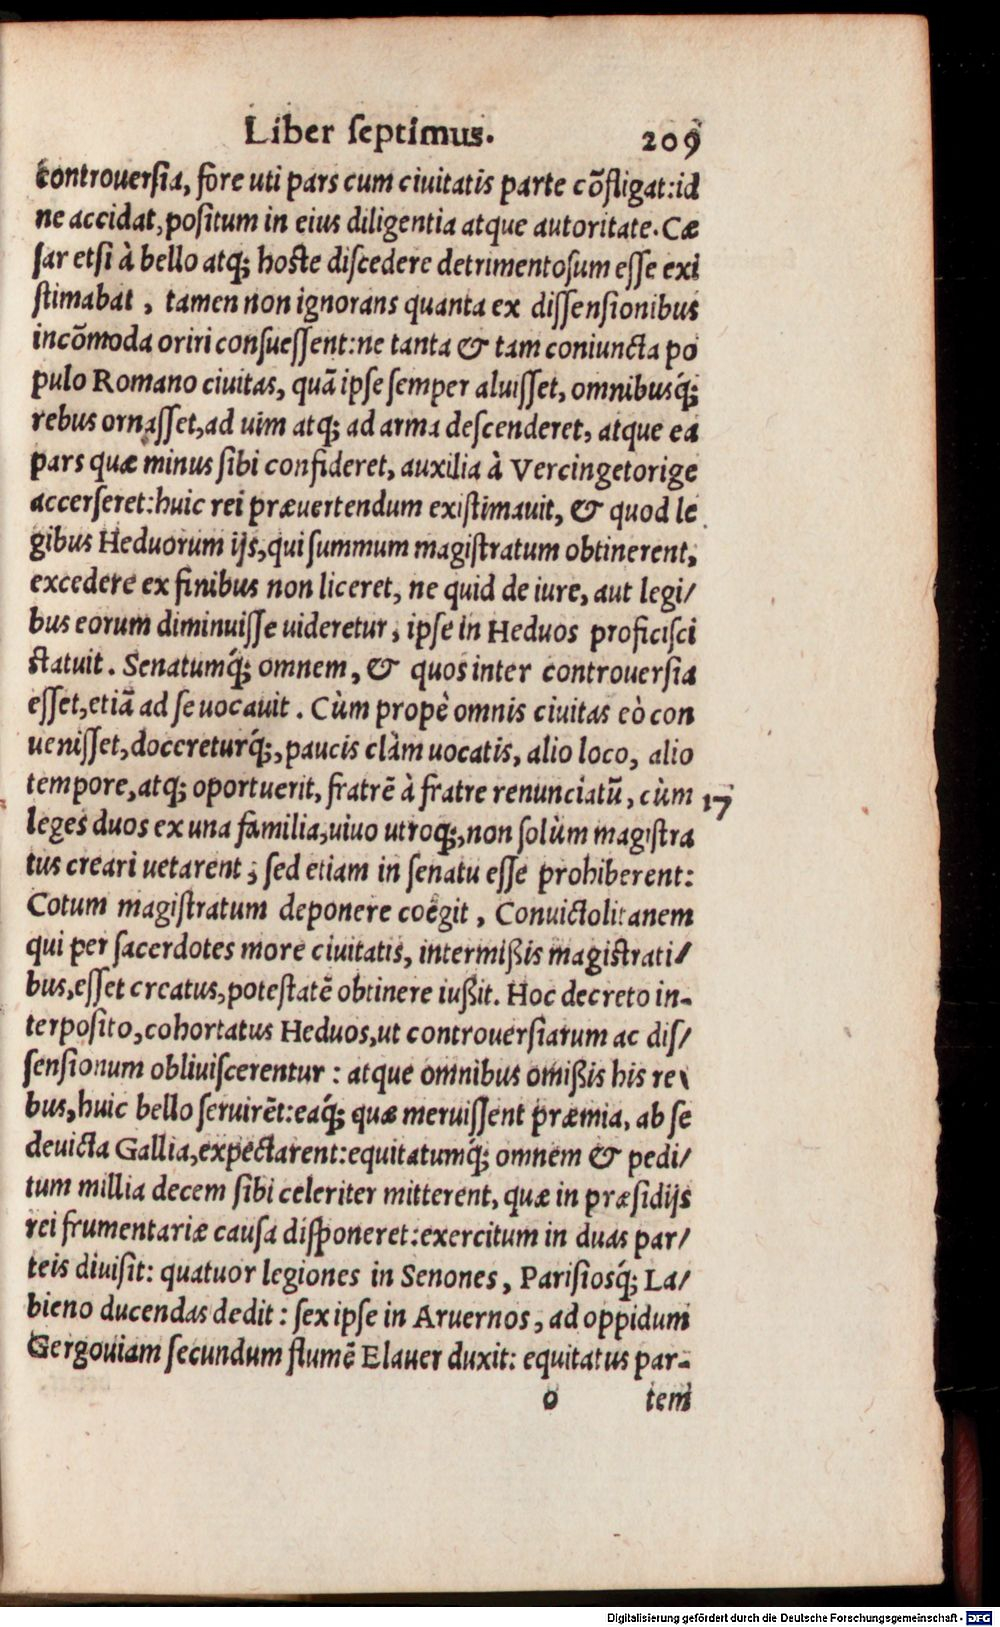 Liber ſeptimus. 209
controuerſia, fore uti pars cum ciuitatis parte cõfligat:id
ne accidat,poſitum in eius diligentia atque autoritate. Cæ
ſar etſi à bello atq; hoſte diſcedere detrimentoſum eſſe exi
ſtimabat , tamen non ignorans quanta ex diſſenſionibus
incõmoda oriri conſueſſent:ne tanta & tam coniuncta po
pulo Romano ciuitas, quã ipſe ſemper aluiſſet, omnibusq́;
rebus ornaſſet,ad uim atq; ad arma deſcenderet, atque ea
pars quæ minus ſibi confideret, auxilia à Vercingetorige
accerſeret:huic rei præuertendum exiſtimauit, & quod le
gibus Heduorum ijs,qui ſummum magiſtratum obtinerent,
excedere ex finibus non liceret, ne quid de iure, aut legi/
bus eorum diminuiſſe uideretur, ipſe in Heduos proficiſci
ſtatuit. Senatumq́; omnem, & quos inter controuerſia
eſſet,etiã ad ſe uocauit. Cùm propè omnis ciuitas eò con
ueniſſet,doceretúrq́;,paucis clàm uocatis, alio loco, alio
tempore,atq; oportuerit, fratrẽ à fratre renunciatũ, cùm 17
leges duos ex una familia,uiuo utroq;,non ſolùm magiſtra
tus creari uetarent ; ſed etiam in ſenatu eſſe prohiberent:
Cotum magiſtratum deponere coëgit , Conuictolitanem
qui per ſacerdotes more ciuitatis, intermißis magiſtrati/
bus,eſſet creatus,poteſtatẽ obtinere iußit. Hoc decreto in-
terpoſito,cohortatus Heduos,ut controuerſiarum ac diſ/
ſenſionum obliuiſcerentur : atque omnibus omißis his re
bus,huic bello ſeruirẽt:eaq́; quæ meruiſſent præmia, ab ſe
deuicta Gallia,expectarent:equitatumq́; omnem & pedi/
tum millia decem ſibi celeriter mitterent, quæ in præſidijs
rei frumentariæ cauſa diſponeret:exercitum in duas par/
teis diuiſit: quatuor legiones in Senones, Pariſiosq́; La/
bieno ducendas dedit : ſex ipſe in Aruernos, ad oppidum
Gergouiam ſecundum flumẽ Elauer duxit: equitatus par-
o tem
Digitalisierung gefördert durch die Deutsche Forschungsgemeinschaft - DFG